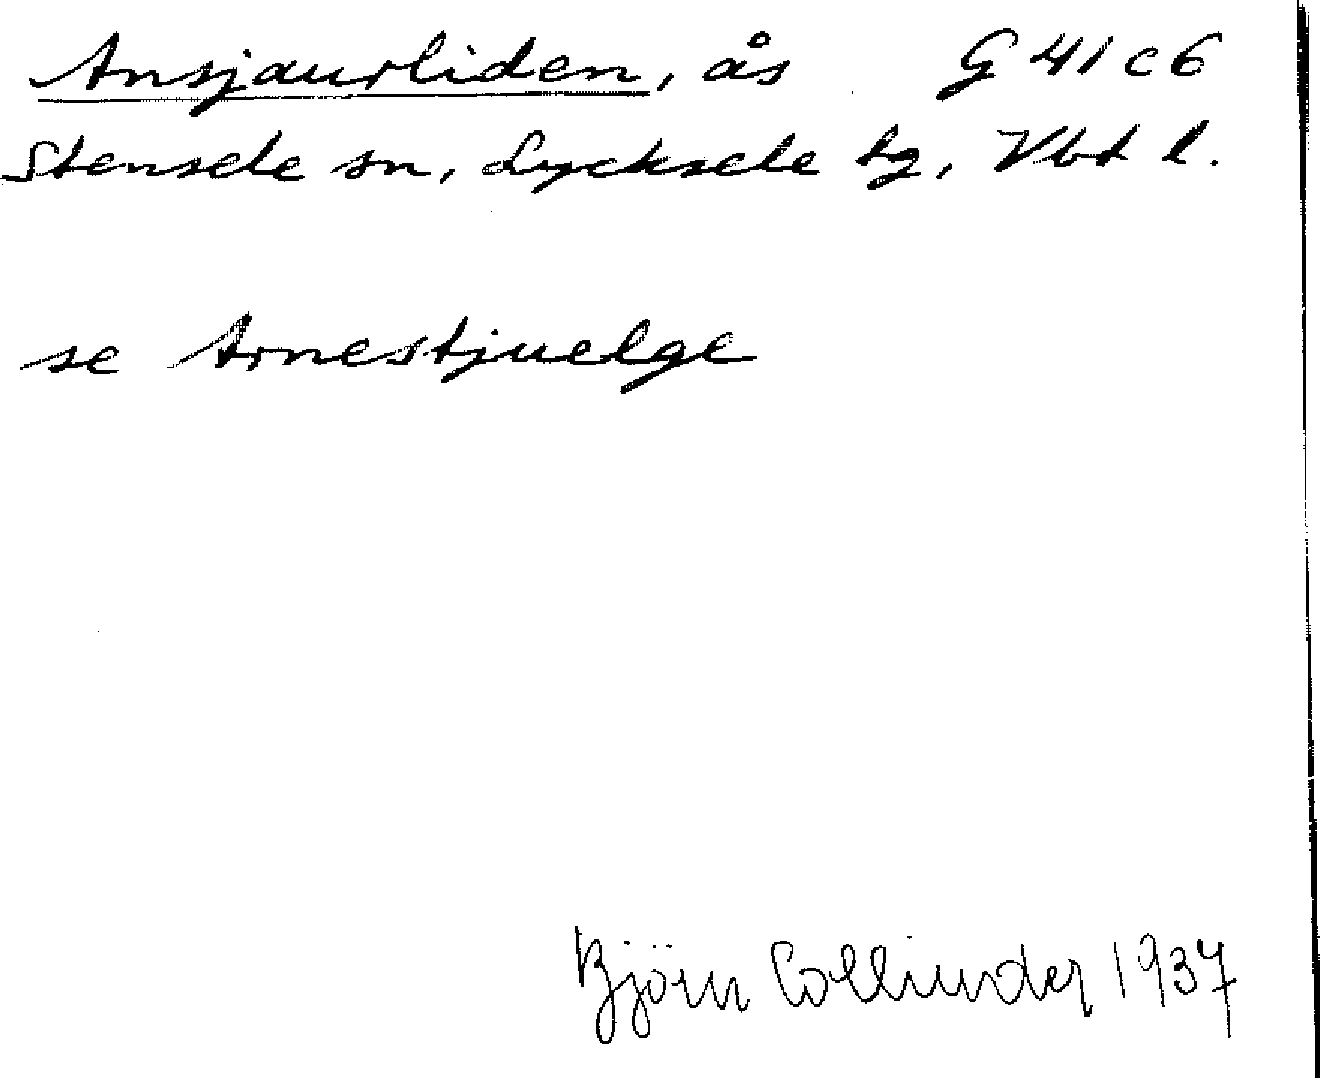 Ansjaurliden, ås G 41 c 6
Stensele sn, Lycksele tg, Vbt l.
se Arnestjuelge
Björn Collinder 1937